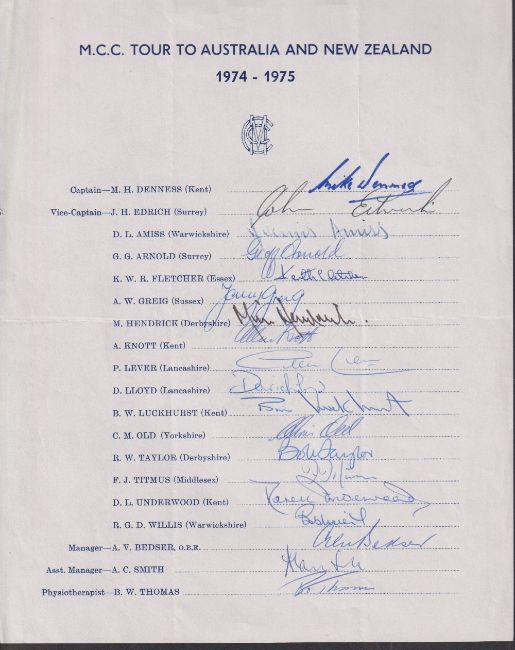 M.C.C. TOUR TO AUSTRALIA AND NEW ZEALAND
1974 - 1975
MCC
Captain—M. H. DENNESS (Kent) Mike Denness
Vice-Captain—J. H. EDRICH (Surrey) John Edrich
D. L. AMISS (Warwickshire) Dennis Amiss
G. G. ARNOLD (Surrey) Geoff Arnold
K. W. R. FLETCHER (Essex) Keith Fletcher
A. W. GREIG (Sussex) Tony Greig
M. HENDRICK (Derbyshire) Mike Hendrick.
A. KNOTT (Kent) Alan Knott
P. LEVER (Lancashire) Peter Lever
D. LLOYD (Lancashire) David Lloyd
B. W. LUCKHURST (Kent) Brian Luckhurst
C. M. OLD (Yorkshire) Chris Old
R. W. TAYLOR (Derbyshire) Bob Taylor
F. J. TITMUS (Middlesex)
D. L. UNDERWOOD (Kent) Derek Underwood
R. G. D. WILLIS (Warwickshire) Bob Willis
Manager—A. V. BEDSER, O.B.E. Alec Bedser
Asst. Manager—A. C. SMITH Alan
Physiotherapist—B. W. THOMAS Thomas